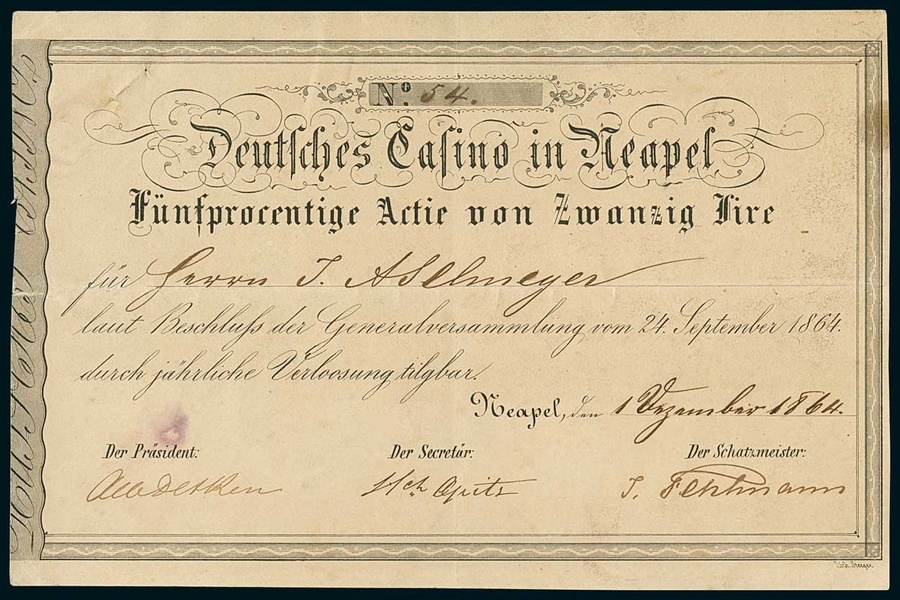 No. 54.
Deutsches Casino in Neapel
Fünfprocentige Actie von Zwanzig Lire
für Herrn J. Aselmeyer
laut Beschluss der Generalversammlung vom 24. September 1864.
durch jährliche Verloosung tilgbar.
Neapel, den 1 Dezember 1864.
Der Präsident: Der Secretär: Der Schatzmeister: